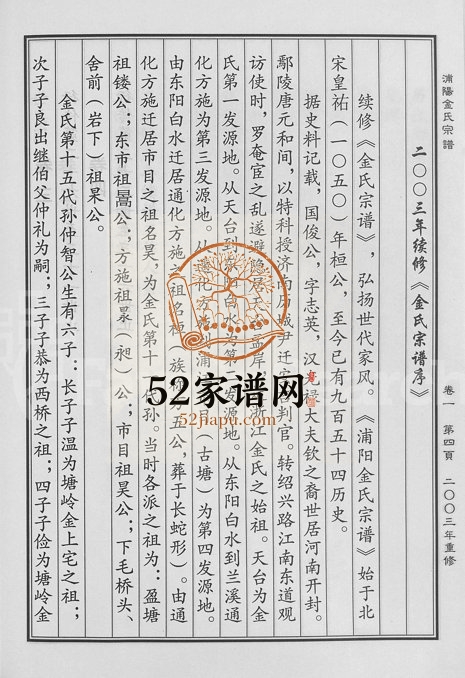 浦陽金氏宗譜
卷一 第四頁 二〇〇三年重修
二〇〇三年续修《金氏宗谱序》
续修《金氏宗谱》，弘扬世代家风。《浦阳金氏宗谱》始于北
宋皇祐（一〇五〇）年桓公，至今已有九百五十四历史。
据史料记载，国俊公，字志英，汉 禄大夫钦之裔世居河南开封。
鄢陵唐元和间，以特科授济南历城尹迁 台判官。转绍兴路江南东道观
访使时，罗奄宦之乱遂避隐居天 孟岸 浙江金氏之始祖。天台为金
氏第一发源地。从天台到东 白水为第 发源地。从东阳白水到兰溪通
化方施为第三发源地。从通化方 浦 月（古塘）为第四发源地。
由东阳白水迁居通化方施之祖名 族 五公，葬于长蛇形）。由通
化方施迁居市目之祖名昊，为金氏第十 孙。当时各派之祖为：盈塘
祖镂公；东市祖暠公；方施祖 （昶）公；市目祖昊公；下毛桥头、
舍前（岩下）祖杲公。
金氏第十五代孙仲智公生有六子：长子子温为塘岭金上宅之祖；
次子子良出继伯父仲礼为嗣；三子子恭为西桥之祖；四子子俭为塘岭金
52家谱网
www.52jiapu.com